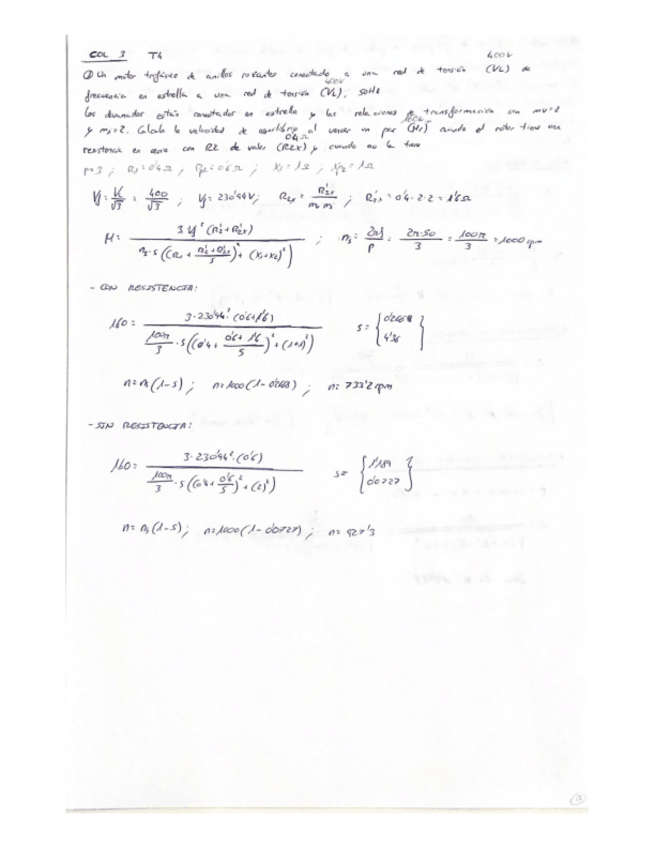 COL 3 T4
400V
① Un motor trifásico de anillos rozantes conectado a una red de tensión (VL) de
400V
frecuencia en estrella a una red de tensión (VL), 50Hz
Los devanados están conectados en estrella y las relaciones de transformación son mv=2
y mi=2. Calcula la velocidad de equilibrio al vencer un par (Mr) cuando el rotor tiene una
0'4Ω
resistencia en serie con R2 de valor (R2x) y cuando no la tiene
p=3 ; R1=0'4Ω ; R'2=0'6Ω ; X1=1Ω ; X'2=1Ω
Vf = VL/√3 = 400/√3 ; Vf = 230'94V ; R2x = R'2x/(mv mi) ; R'2x = 0'4·2·2 = 1'6Ω
M = 3·Vf² (R'2+R'2x) / (ns·s((R1 + (R'2+R'2x)/s)² + (X1+X2)²)) ; ns = 2πf/p = 2π·50/3 = 100π/3 = 1000 rpm
- CON RESISTENCIA:
160 = 3·230'94²·(0'6+1'6) / (100π/3 · s((0'4 + (0'6+1'6)/s)² + (1+1)²)) s = { 0'2668 4'36 }
n = ns(1-s) ; n = 1000(1-0'2668) ; n = 733'2 rpm
- SIN RESISTENCIA:
160 = 3·230'94²·(0'6) / (100π/3 · s((0'4 + 0'6/s)² + (2)²)) s = { 1'189 0'0727 }
n = ns(1-s) ; n = 1000(1-0'0727) ; n = 927'3